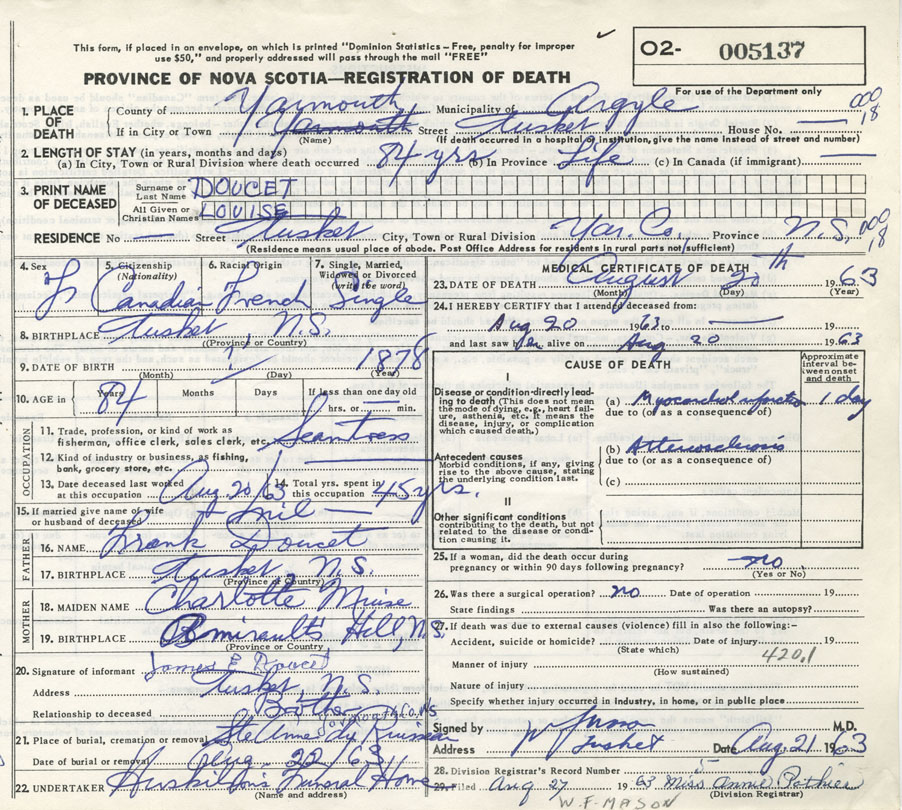 This form, if placed in an envelope, on which is printed "Dominion Statistics – Free, penalty for improper
use $50," and properly addressed will pass through the mail "FREE"
O2- 005137
PROVINCE OF NOVA SCOTIA—REGISTRATION OF DEATH
For use of the Department only
1. PLACE OF DEATH
County of Yarmouth Municipality of Argyle
If in City or Town Yarmouth Street Tusket House No. —
(Name) (If death occurred in a hospital or institution, give the name instead of street and number)
2. LENGTH OF STAY (in years, months and days)
(a) In City, Town or Rural Division where death occurred 84 yrs (b) In Province Life (c) In Canada (if immigrant) —
3. PRINT NAME OF DECEASED
Surname or Last Name DOUCET
All Given or Christian Names LOUISE
RESIDENCE No — Street Tusket City, Town or Rural Division Yar. Co. Province N.S.
(Residence means usual place of abode. Post Office Address for residents in rural parts not sufficient)
4. Sex F
5. Citizenship (Nationality) Canadian
6. Racial Origin French
7. Single, Married, Widowed or Divorced (write the word) Single
8. BIRTHPLACE Tusket, N.S.
(Province or Country)
9. DATE OF BIRTH ? 1878
(Month) (Day) (Year)
10. AGE in Years 84 Months Days If less than one day old hrs. or min.
OCCUPATION
11. Trade, profession, or kind of work as
fisherman, office clerk, sales clerk, etc. Seamtress
12. Kind of industry or business, as fishing,
bank, grocery store, etc. —
13. Date deceased last worked at this occupation Aug. 20/63 14. Total yrs. spent in this occupation 45 yrs.
15. If married give name of wife
or husband of deceased — nil —
FATHER
16. NAME Frank Doucet
17. BIRTHPLACE Tusket, N.S.
(Province or Country)
MOTHER
18. MAIDEN NAME Charlotte Muise
19. BIRTHPLACE Amiraults Hill, N.S.
(Province or Country)
20. Signature of informant James E Doucet
Address Tusket, N.S.
Relationship to deceased Brother
Yarmouth Co. N S
21. Place of burial, cremation or removal Ste Anne du Ruisseau
Date of burial or removal Aug. 22/63
22. UNDERTAKER Funeral Home
(Name and address)
MEDICAL CERTIFICATE OF DEATH
23. DATE OF DEATH August 20th 1963
(Month) (Day) (Year)
24. I HEREBY CERTIFY that I attended deceased from:
Aug 20 1963 to — 19
and last saw her alive on Aug 20 1963
CAUSE OF DEATH
Approximate interval between onset and death
I
Disease or condition directly leading
to death (This does not mean
the mode of dying, e.g., heart failure,
asthenia, etc. It means the
disease, injury, or complication
which caused death.)
(a) Myocardial infarction 1 day
due to (or as a consequence of)
Antecedent causes
Morbid conditions, if any, giving
rise to the above cause, stating
the underlying condition last.
(b) Arteriosclerosis
due to (or as a consequence of)
(c)
II
Other significant conditions
contributing to the death, but not
related to the disease or condition
causing it.
25. If a woman, did the death occur during
pregnancy or within 90 days following pregnancy? no
(Yes or No)
26. Was there a surgical operation? no Date of operation 19
State findings Was there an autopsy?
27. If death was due to external causes (violence) fill in also the following:–
Accident, suicide or homicide? Date of injury 19
(State which) 420.1
Manner of injury
(How sustained)
Nature of injury
Specify whether injury occurred in industry, in home, or in public place
Signed by M.D.
Address Tusket Date Aug. 21 1963
28. Division Registrar's Record Number 5
29. Filed Aug 27 1963 Miss Annie Pothier
(Division Registrar)
W. F. MASON